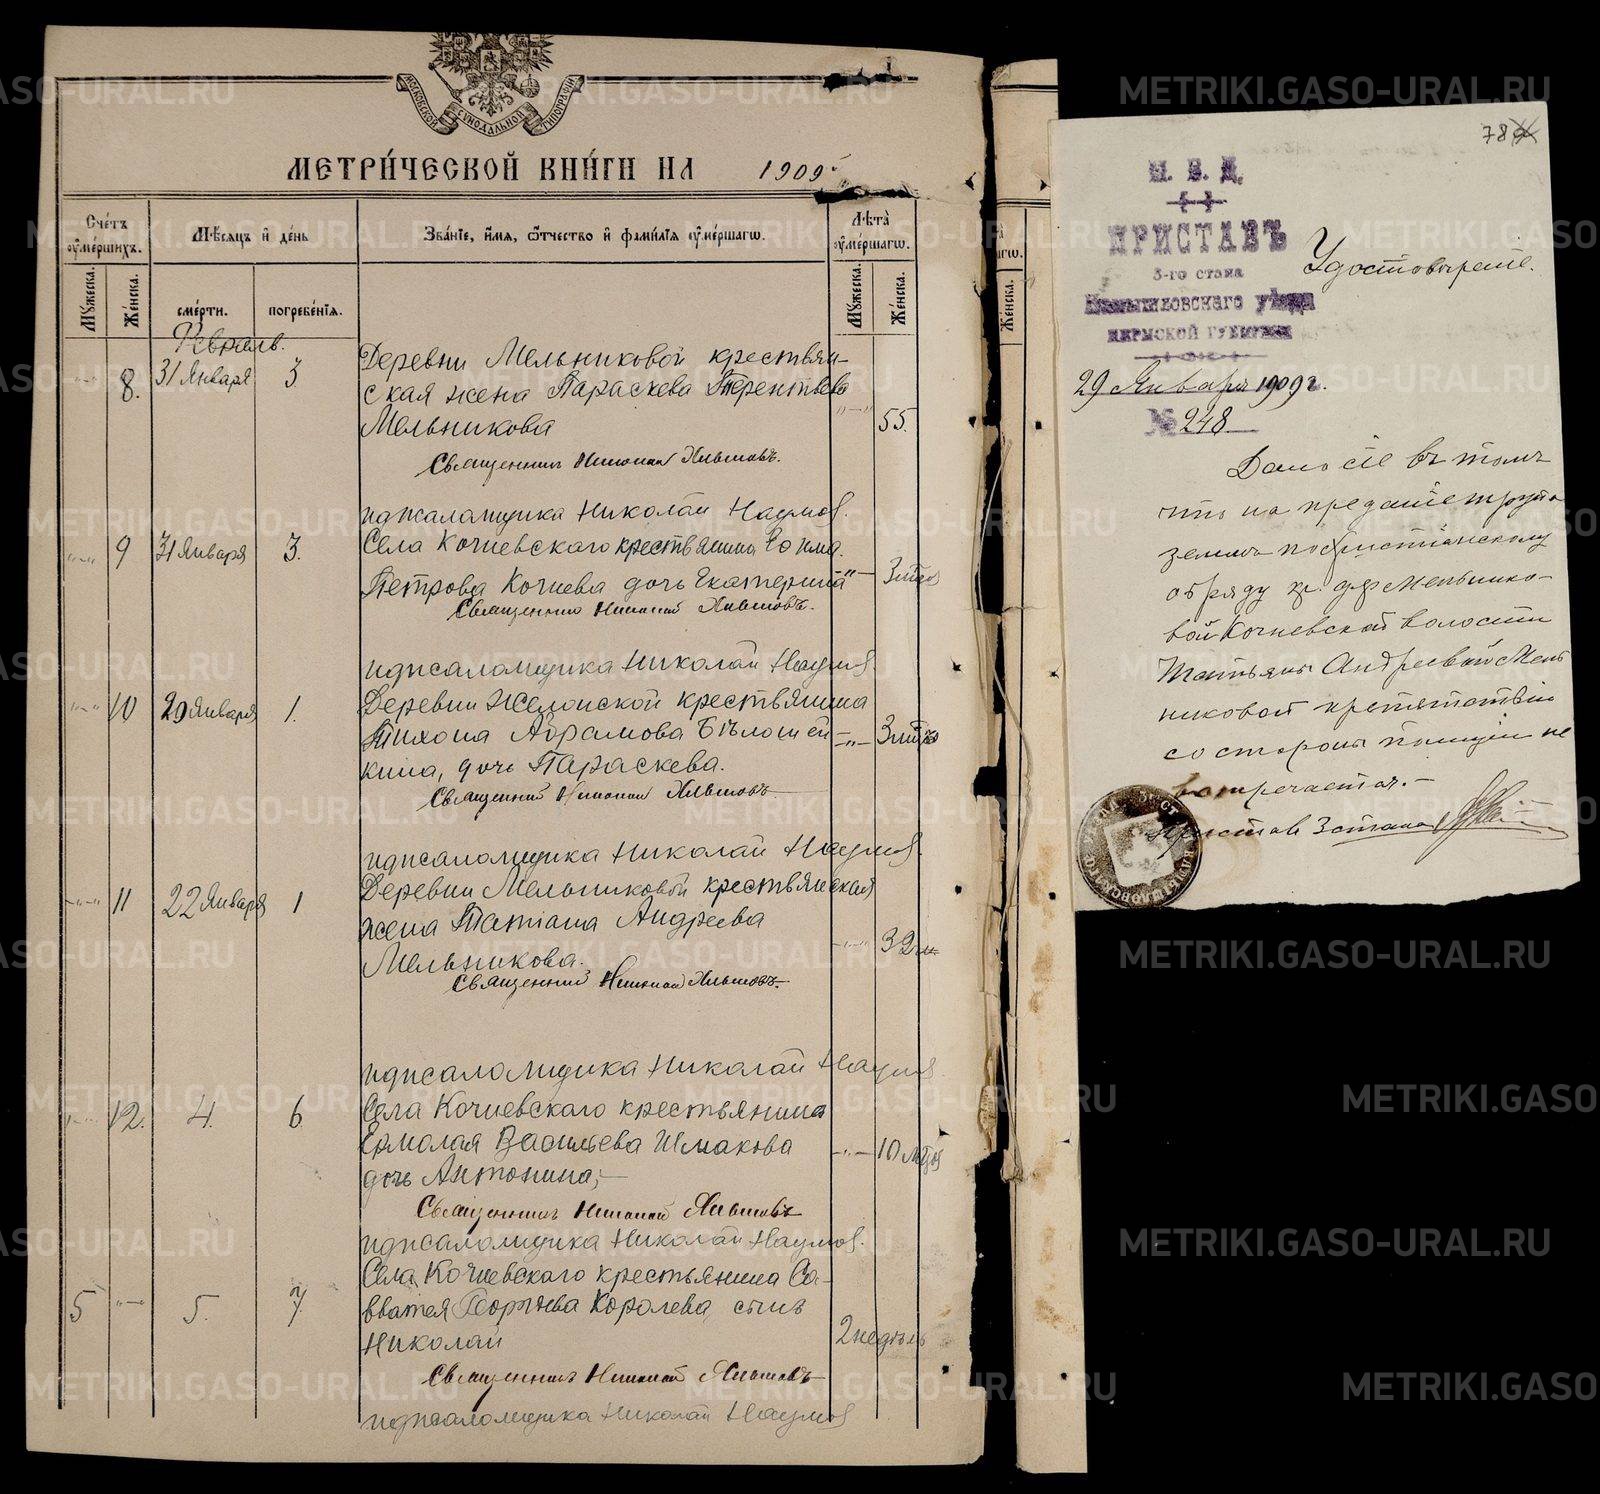 МОСКОВСКОЙ СѴНОДАЛЬНОЙ ТИПОГРАФІИ
МЕТРИ́ЧЕСКОЙ КНИ́ГИ НА 1909
Сче́тъ ᲂу҆ме́ршихъ.
Мѣ́сяцъ и҆ де́нь
Зва́нїе, и҆́мѧ, ѻ҆́тчество и҆ фами́лїѧ ᲂу҆ме́ршагѡ.
Лѣта̀ ᲂу҆ме́ршагѡ.
Мꙋ́жеска.
Же́нска.
сме́рти.
погребе́нїѧ.
Мꙋ́жеска.
Же́нска.
Февраль.
8. 31 Января 3 Деревни Мельниковой крестьян-
ская жена Параскева Терентьева
Мельникова 55.
Священникъ Николай Хлыновъ.
и д псаломщика Николай Наумов.
9 31 Января 3. Села Кочневскаго крестьянина
Петрова Кочнева дочь Екатерина
Священникъ Николай Хлыновъ.
и д псаломщика Николай Наумов
10 29 Января 1. Деревни крестьянина
Тихона Абрамова
кина, дочь Параскева.
Священник Николай Хлыновъ
и д псаломщика Николай Наумов.
11 22 Января 1 Деревни Мельниковой крестьянская
жена Татіана Андреева
Мельникова. 32
Священник Николай Хлыновъ.
и д псаломщика Николай Наумов
12. 4. 6 Села Кочневскаго крестьянина
Ермолая Васильева Шмакова
дочь Антонина; 10 лѣтъ
Священникъ Николай Хлыновъ
и д псаломщика Николай Наумов.
5 5. 7 Села Кочневскаго крестьянина Са-
ватея Георгіева Королева, сынъ
Николай 2 недѣль
Священникъ Николай Хлыновъ
и д псаломщика Николай Наумов
Же́нска.
78
М. В. Д.
ПРИСТАВЪ
3-го стана
Камышловскаго уѣзда
ПЕРМСКОЙ ГУБЕРНІИ
29 Января 1909 г.
№ 248
Удостовѣреніе.
Дано сіе въ томъ
что на преданіе трупа
землѣ по христіанскому
обряду кр. дер Мельнико-
вой Кочневской волости
Татьяны Андреевой Мель
никовой препятствій
со стороны полиціи не
встречается.-
Пристав 3 стана
METRIKI.GASO-URAL.RU